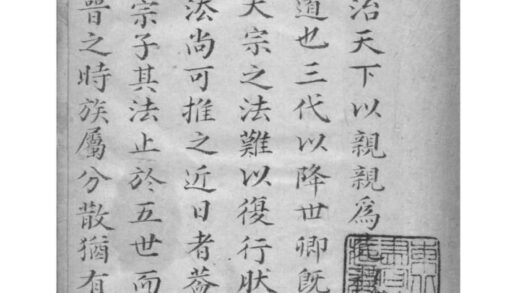 治天下以親親爲
道也三代以降世卿旣
大宗之法難以復行
法尚可推之近日者葢
宗子其法止於五世而
晉之時族屬分散猶有